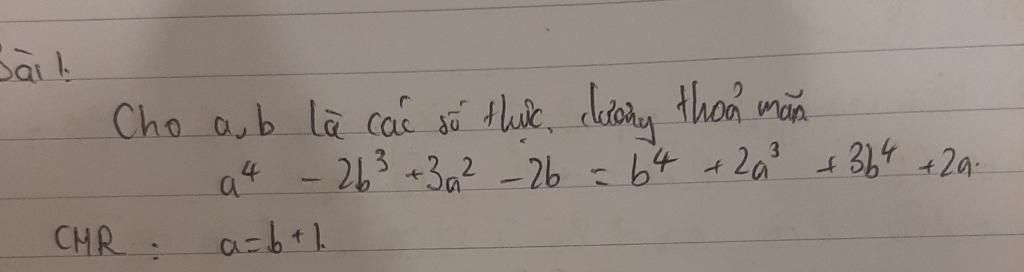 Bài 1:
Cho a, b là các số thực, dương thoả mãn
a⁴ - 2b³ + 3a² - 2b = b⁴ + 2a³ + 3b⁴ + 2a.
CMR : a = b + 1.